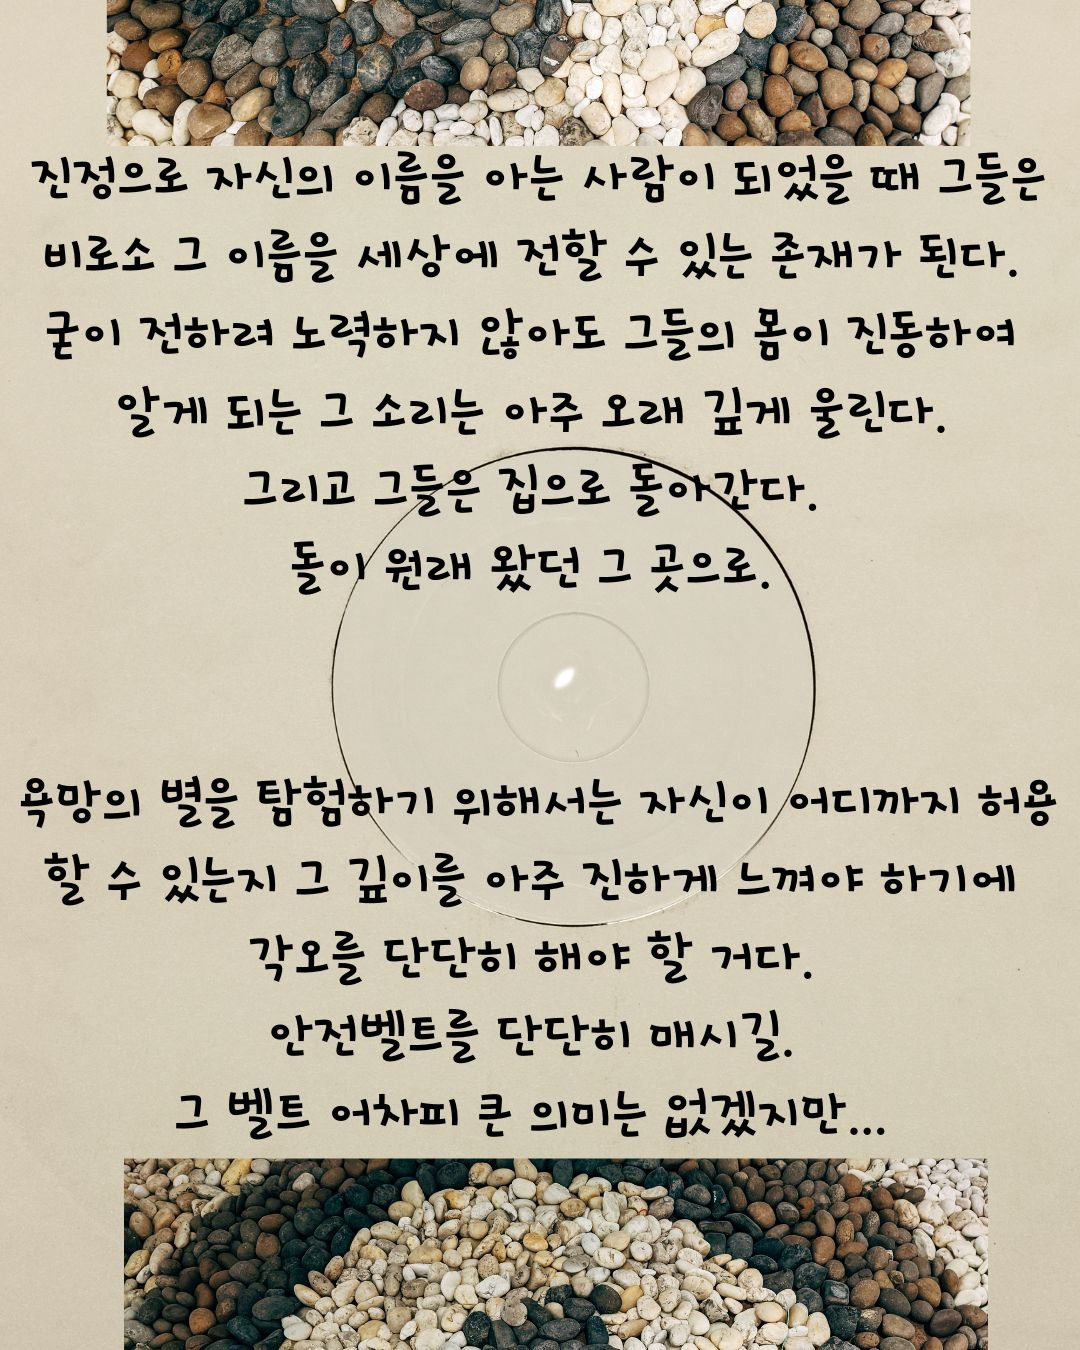 진정으로 자신의 이름을 아는 사람이 되었을 때 그들은
비로소 그 이름을 세상에 전할 수 있는 존재가 된다.
굳이 전하려 노력하지 않아도 그들의 몸이 진동하여
알게 되는 그 소리는 아주 오래 깊게 울린다.
그리고 그들은 집으로 돌아간다.
돌이 원래 왔던 그 곳으로.
욕망의 별을 탐험하기 위해서는 자신이 어디까지 허용
할 수 있는지 그 깊이를 아주 진하게 느껴야 하기에
각오를 단단히 해야 할 거다.
안전벨트를 단단히 매시길.
그 벨트 어차피 큰 의미는 없겠지만...